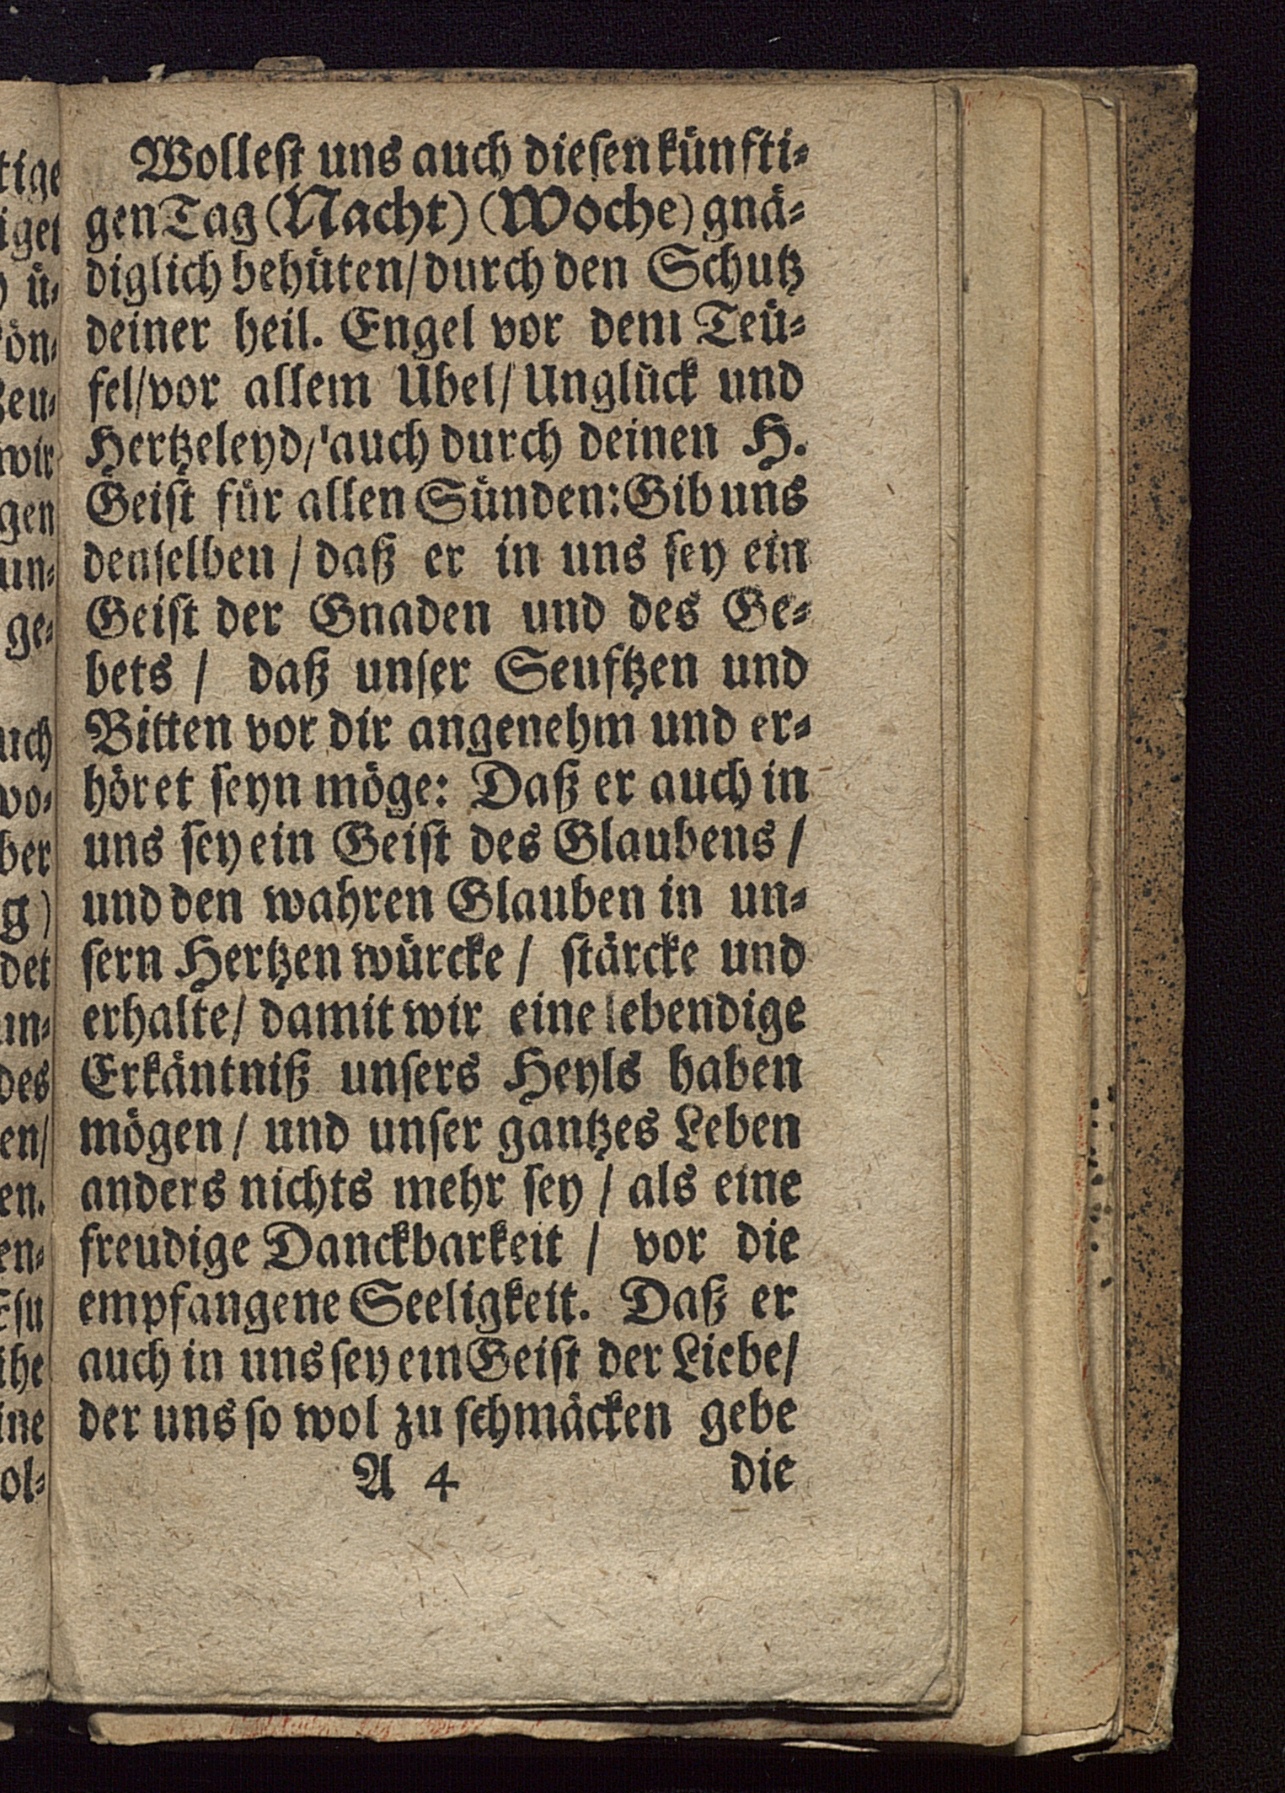 Wollest uns auch diesen künfti-
gen Tag (Nacht) (Woche) gnä-
diglich behüten/ durch den Schutz
deiner heil. Engel vor dem Teü-
fel/ vor allem Ubel/ Unglück und
Hertzeleyd/ auch durch deinen H.
Geist für allen Sünden: Gib uns
denselben / daß er in uns sey ein
Geist der Gnaden und des Ge-
bets / daß unser Seuftzen und
Bitten vor dir angenehm und er-
höret seyn möge: Daß er auch in
uns sey ein Geist des Glaubens /
und den wahren Glauben in un-
sern Hertzen würcke / stärcke und
erhalte/ damit wir eine lebendige
Erkäntniß unsers Heyls haben
mögen / und unser gantzes Leben
anders nichts mehr sey / als eine
freudige Danckbarkeit / vor die
empfangene Seeligkeit. Daß er
auch in uns sey ein Geist der Liebe/
der uns so wol zu schmäcken gebe
A 4 die